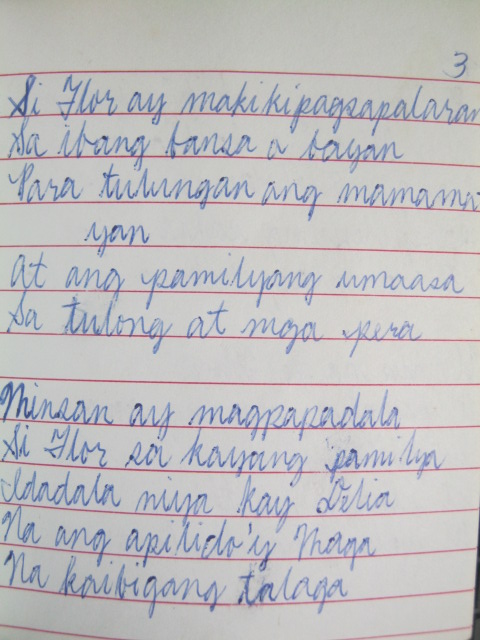 3
Si Flor ay makikipagsapalaran
Sa ibang bansa o bayan
Para tulungan ang mamama-
yan
At ang pamilyang umaasa
Sa tulong at mga pera
Minsan ay magpapadala
Si Flor sa kayang pamilya
Idadala niya kay Delia
Na ang apilido'y Maga
Na kaibigang talaga